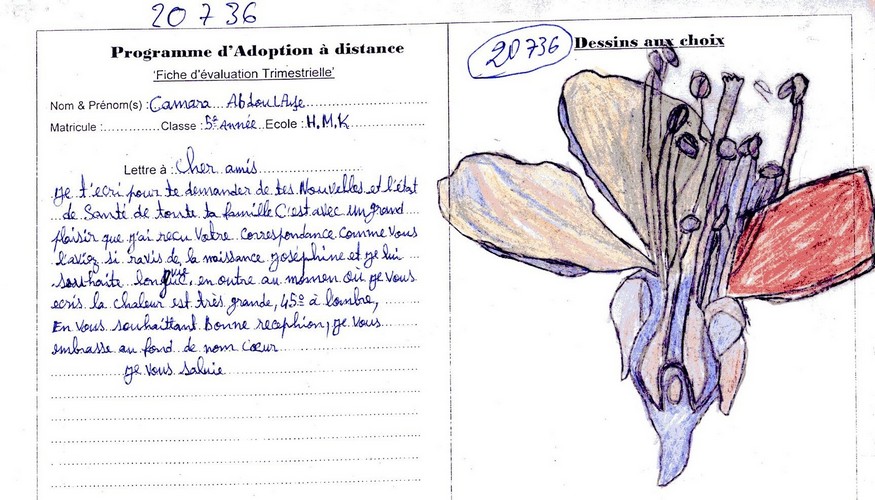 20736
Programme d'Adoption à distance
'Fiche d'évaluation Trimestrielle'
Nom & Prénom(s) : Camara Abdoulaye
Matricule : Classe : 5e Année Ecole : H.M.K
Lettre à : Cher amis
Je t'ecri pour te demander de tes Nouvelles et l'état
de Santé de toute ta famille C'est avec un grand
plaisir que j'ai reçu Votre Correspondance Comme Vous
l'aviez si ravis de la naissance Joséphine et je lui
souhaite longue vie, en outre au momen où je Vous
ecris la chaleur est très grande, 45° à l'ombre,
En Vous souhaittant Bonne recephion, je Vous
embrasse au fond de nom Cœur
je Vous salue
20736
Dessins aux choix